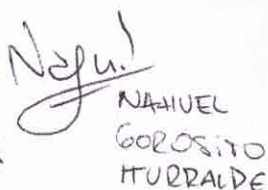 Nahuel
NAHUEL
GOROSITO
ITURRALDE